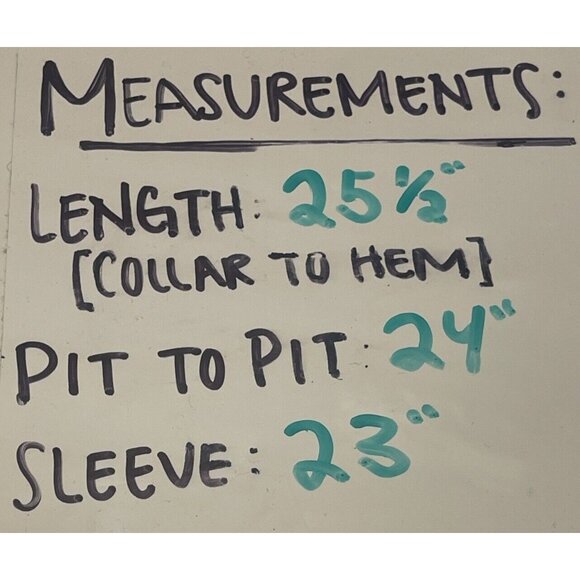 MEASUREMENTS:
LENGTH: 25 ½"
[COLLAR TO HEM]
PIT TO PIT: 24"
SLEEVE: 23"